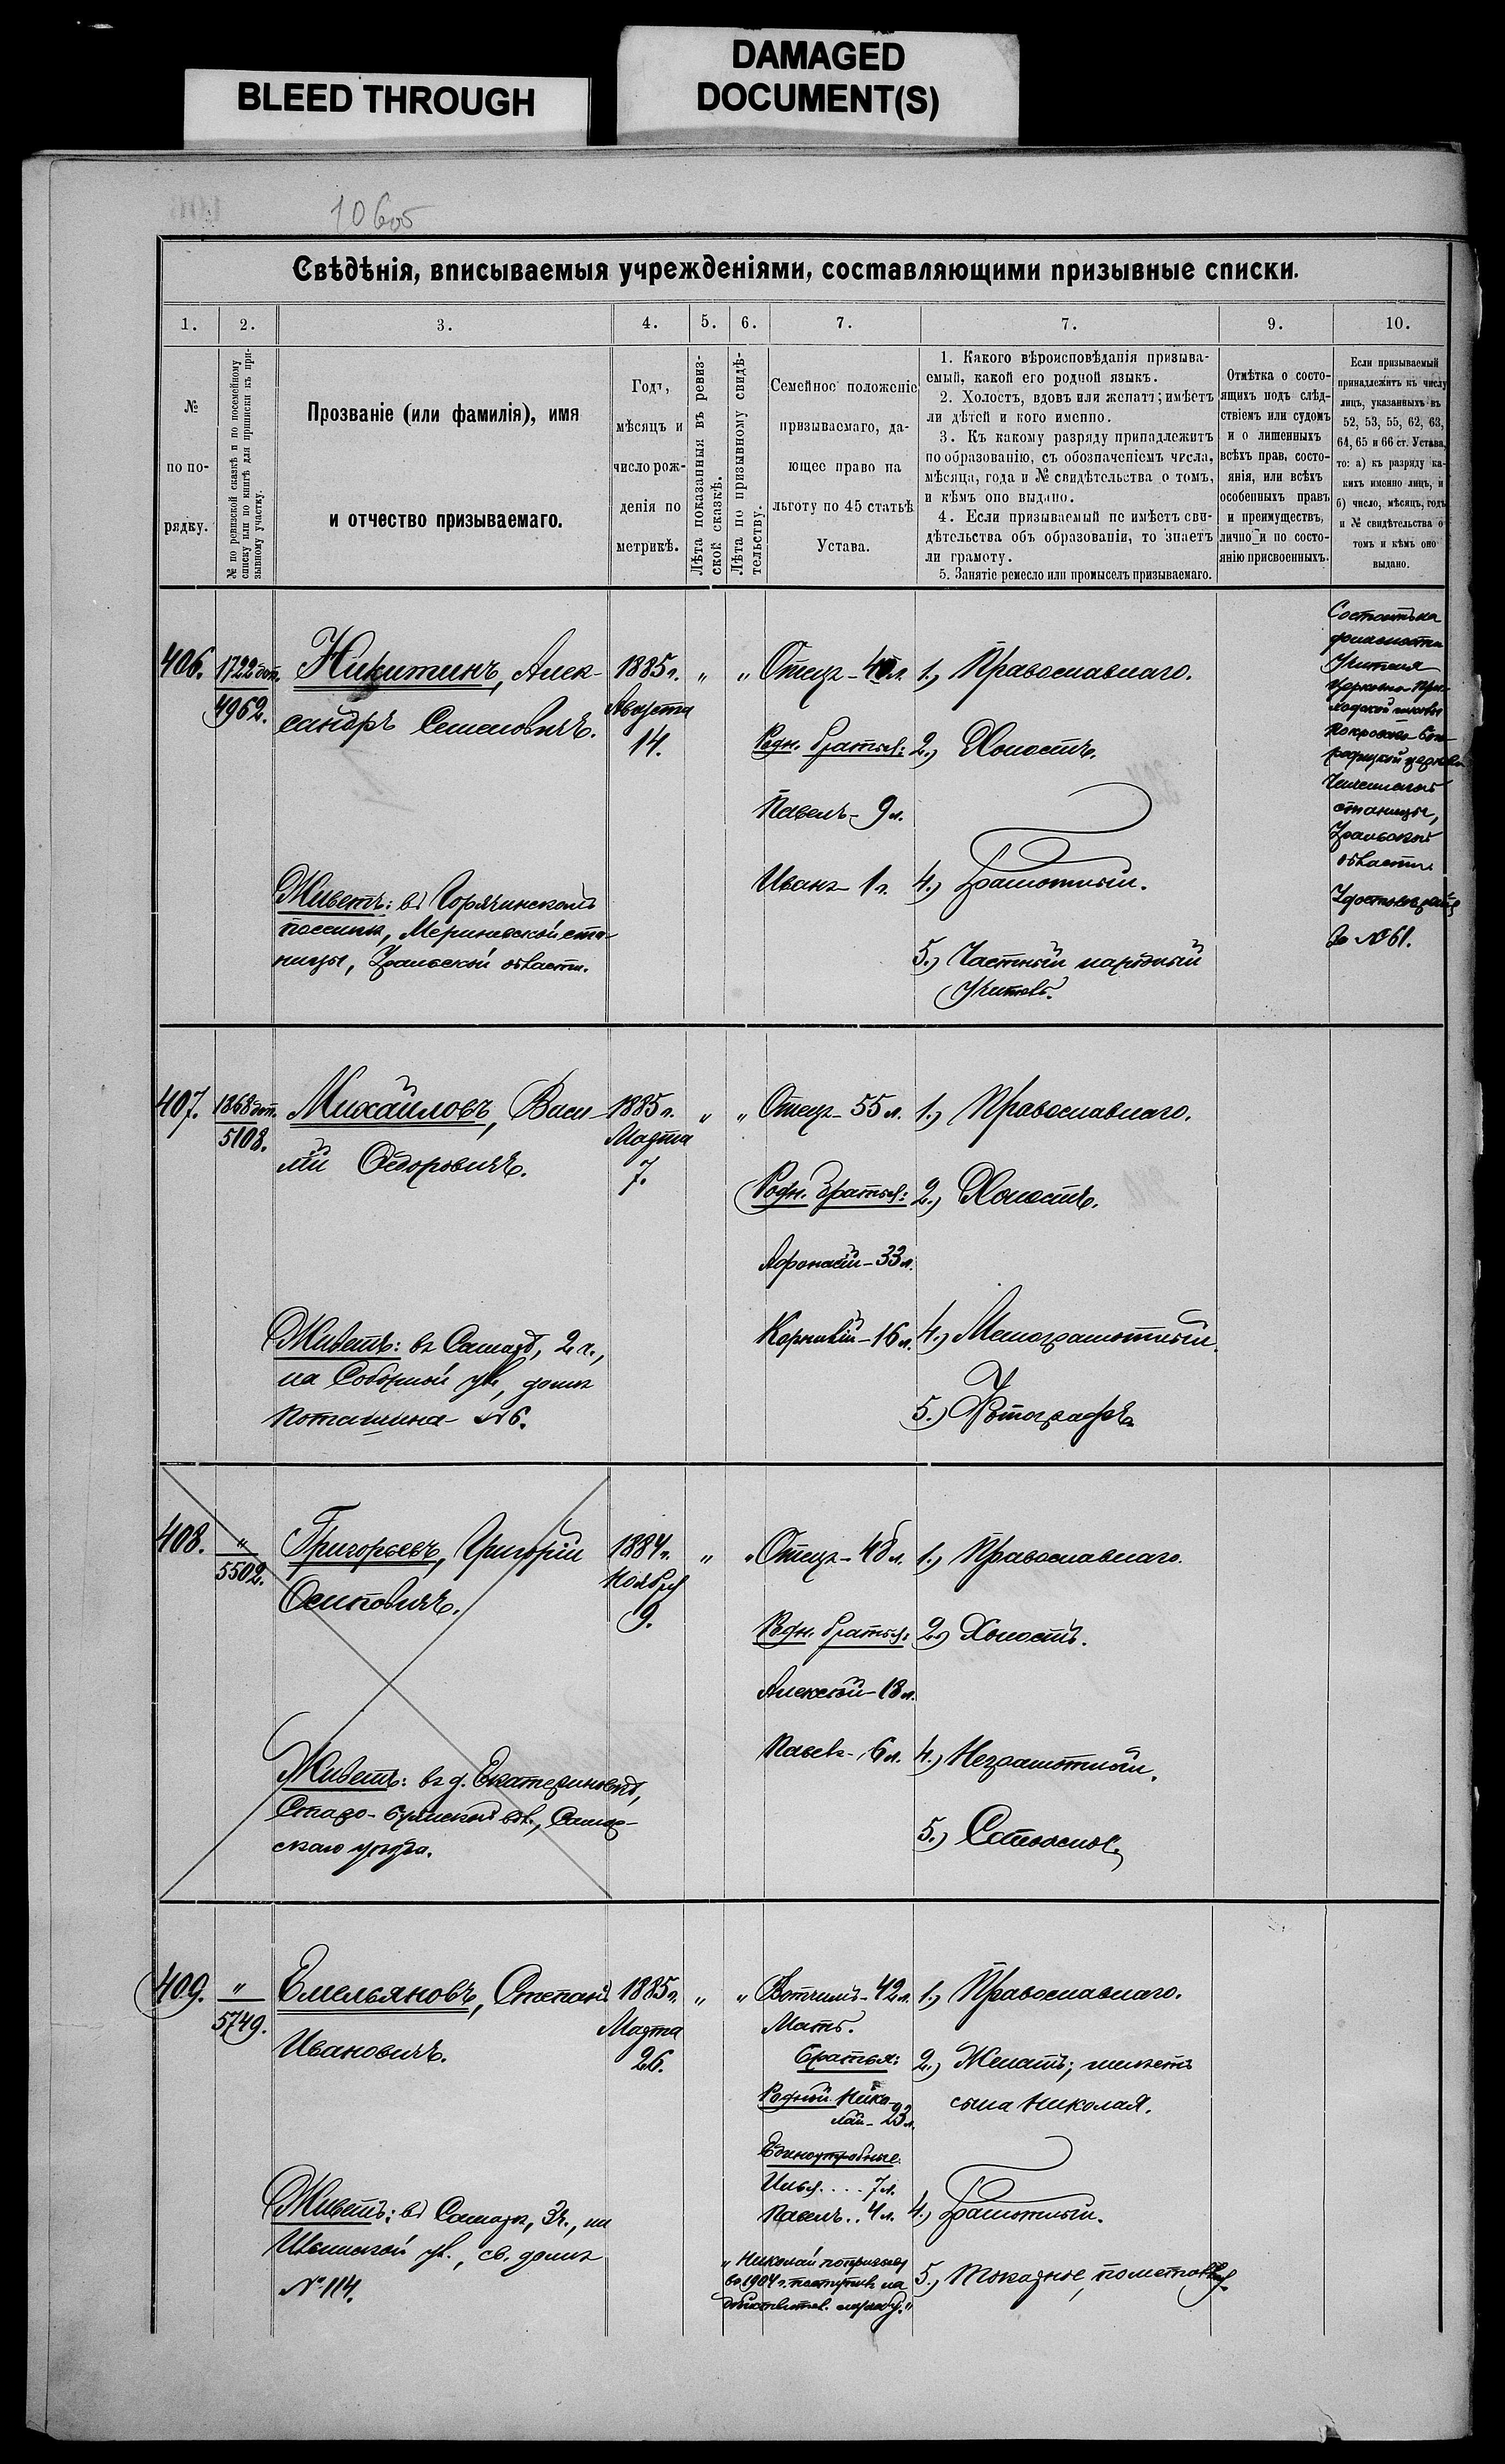 BLEED THROUGH
DAMAGED
DOCUMENT(S)
106об
Свѣдѣнія, вписываемыя учрежденіями, составляющими призывные списки.
1.
2.
3.
4.
5.
6.
7.
7.
9.
10.
№
по по-
рядку.
№ по ревизской сказкѣ и по посемейному
списку или по книгѣ для приписки къ при-
зывному участку.
Прозваніе (или фамилія), имя
и отчество призываемаго.
Годъ,
мѣсяцъ и
число рож-
денія по
метрикѣ.
Лѣта показанныя въ ревиз-
ской сказкѣ.
Лѣта по призывному свидѣ-
тельству.
Семейное положеніе
призываемаго, да-
ющее право на
льготу по 45 статьѣ
Устава.
1. Какого вѣроисповѣданія призыва-
емый, какой его родной языкъ.
2. Холостъ, вдовъ или женатъ; имѣетъ
ли дѣтей и кого именно.
3. Къ какому разряду принадлежитъ
по образованію, съ обозначеніемъ числа,
мѣсяца, года и № свидѣтельства о томъ,
и кѣмъ оно выдано.
4. Если призываемый не имѣетъ сви-
дѣтельства объ образованіи, то знаетъ
ли грамоту.
5. Занятіе ремесло или промыселъ призываемаго.
Отмѣтка о состо-
ящихъ подъ слѣд-
ствіемъ или судомъ
и о лишенныхъ
всѣхъ прав, состо-
янія, или всѣхъ
особенныхъ правъ
и преимуществъ,
лично и по состо-
янію присвоенныхъ.
Если призываемый
принадлежитъ къ числу
лицъ, указанныхъ въ
52, 53, 55, 62, 63,
64, 65 и 66 ст. Устава,
то: а) къ разряду ка-
кихъ именно лицъ, и
б) число, мѣсяцъ, годъ
и № свидѣтельства о
томъ и кѣмъ оно
выдано.
406.
1722
4962.
Никитинъ, Алек-
сандръ Семеновичъ.
Живетъ: въ Горячинскомъ
поселкѣ, Мериневской ста-
ницы, Уральской области.
1885 г.
Августа
14.
"
"
Отецъ - л.
Родн. братья:
Павелъ - 9 л.
Иванъ - 1 г.
1.) Православнаго.
2.) Холостъ.
4.) Грамотный.
5.) Частный народный
учитель.
Состоитъ на
должности
учителя
церковно-при-
ходской школы
Покровско-Бого-
родицкой церкви
станицы,
Уральской
области
№ 61.
407.
1868
5108.
Михайловъ, Васи-
лій Ѳедоровичъ.
Живетъ: въ Самарѣ, 2 ч.,
на Соборной ул., домъ
Поташина - № 6.
1885 г.
Марта
7.
"
"
Отецъ - 55 л.
Родн. братья:
Афонасій - 33 л.
Корнилій - 16 л.
1.) Православнаго.
2.) Холостъ.
4.) Малограмотный.
5.) Фотографъ.
408.
"
5502.
Григорьевъ, Григорій
Осиповичъ.
Живетъ: въ д. Екатериновкѣ,
Старо-Буянской вол., Самар-
скаго уѣзда.
1884 г.
Ноября
9.
"
"
Отецъ - 48 л.
Родн. братья:
Алексѣй - 18 л.
Павелъ - 6 л.
1.) Православнаго.
2.) Холостъ.
4.) Неграмотный.
5.)
409.
"
5749.
Емельяновъ, Степанъ
Ивановичъ.
Живетъ: въ Самарѣ, 3 ч., на
Ильинской ул., св. домъ
№ 114.
1885 г.
Марта
26.
"
"
Вотчимъ - 42 л.
Мать.
Братья:
Родной Нико-
лай - 23 л.
Единоутробные:
Илья .... 7 л.
Павелъ .. 4 л.
"Николай по призыву
въ 1904 г. поступилъ на
дѣйствител. службу."
1.) Православнаго.
2.) Женатъ; имѣетъ
сына Николая.
4.) Грамотный.
5.)